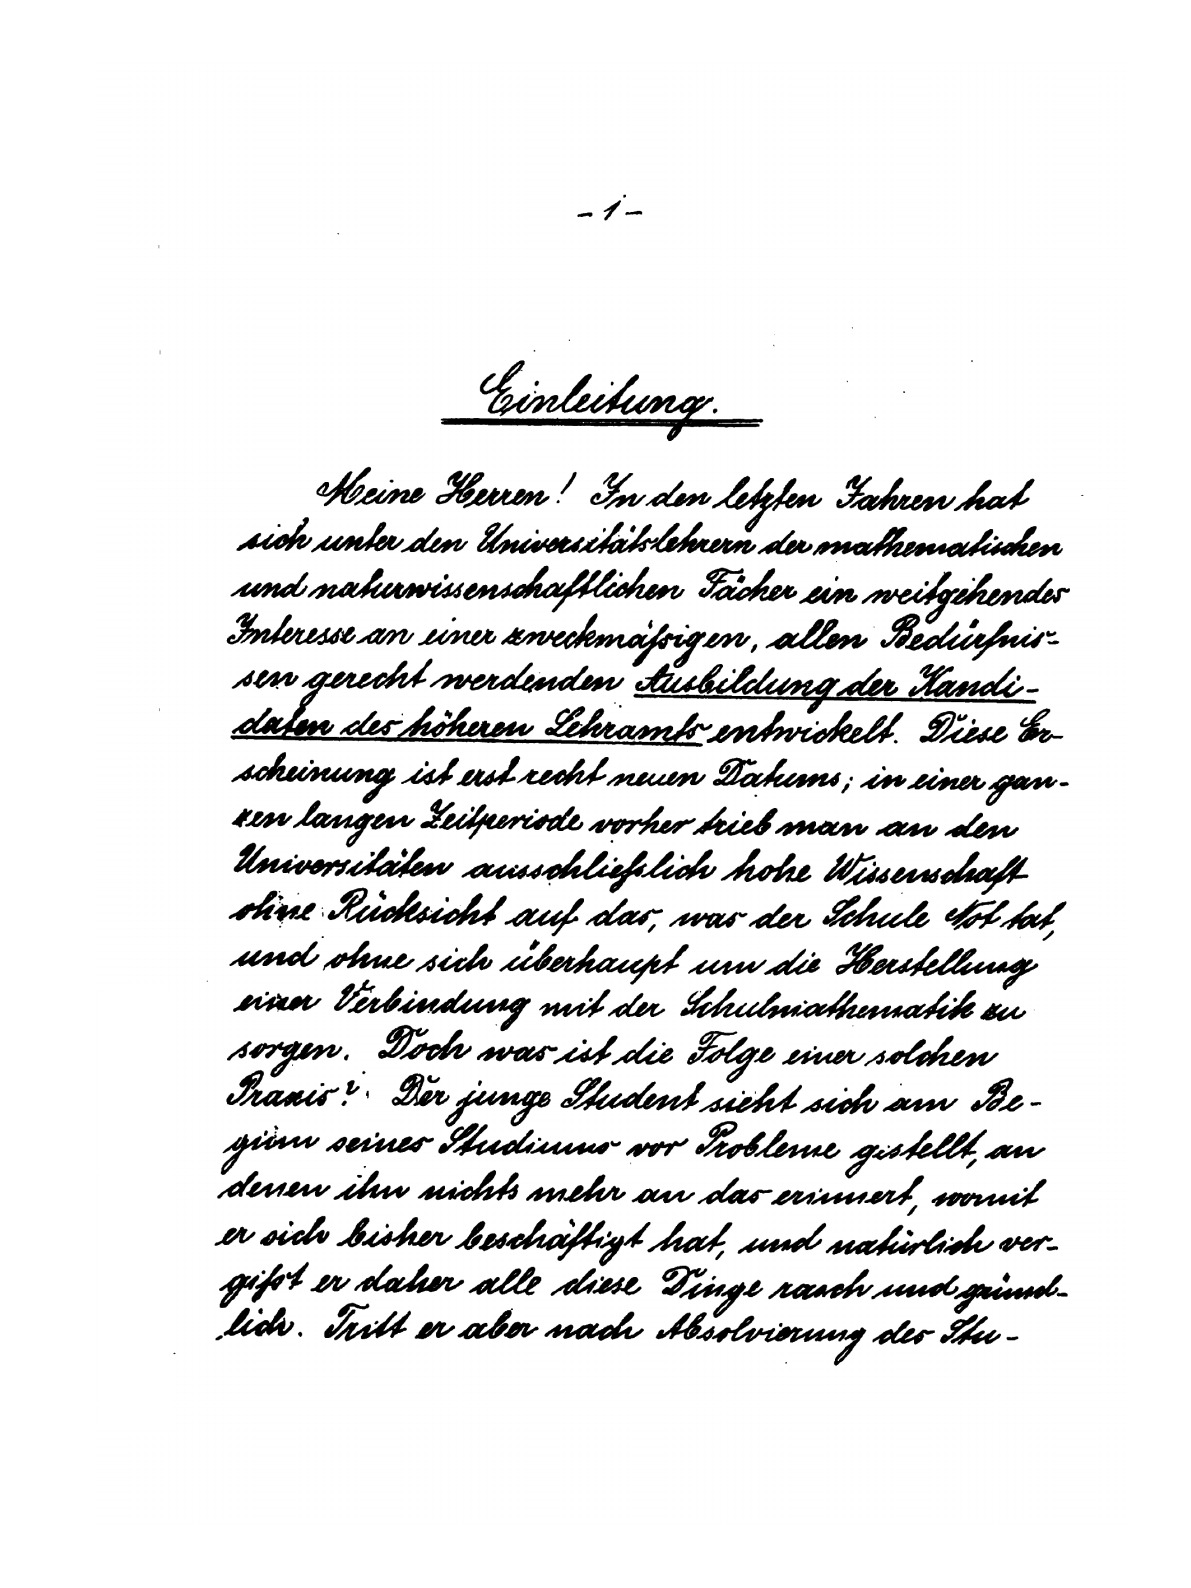 - 1 -
Einleitung.
Meine Herren! In den letzten Jahren hat
sich unter den Universitätslehrern der mathematischen
und naturwissenschaftlichen Fächer ein weitgehendes
Interesse an einer zweckmäßigen, allen Bedürfnis-
sen gerecht werdenden Ausbildung der Kandi-
daten des höheren Lehramts entwickelt. Diese Er-
scheinung ist erst recht neuen Datums; in einer gan-
zen langen Zeitperiode vorher trieb man an den
Universitäten ausschließlich hohe Wissenschaft
ohne Rücksicht auf das, was der Schule Not tat,
und ohne sich überhaupt um die Herstellung
einer Verbindung mit der Schulmathematik zu
sorgen. Doch was ist die Folge einer solchen
Praxis? Der junge Student sieht sich am Be-
ginn seines Studiums vor Probleme gestellt, an
denen ihn nichts mehr an das erinnert, womit
er sich bisher beschäftigt hat, und natürlich ver-
gißt er daher alle diese Dinge rasch und gründ-
lich. Tritt er aber nach Absolvierung des Stu-